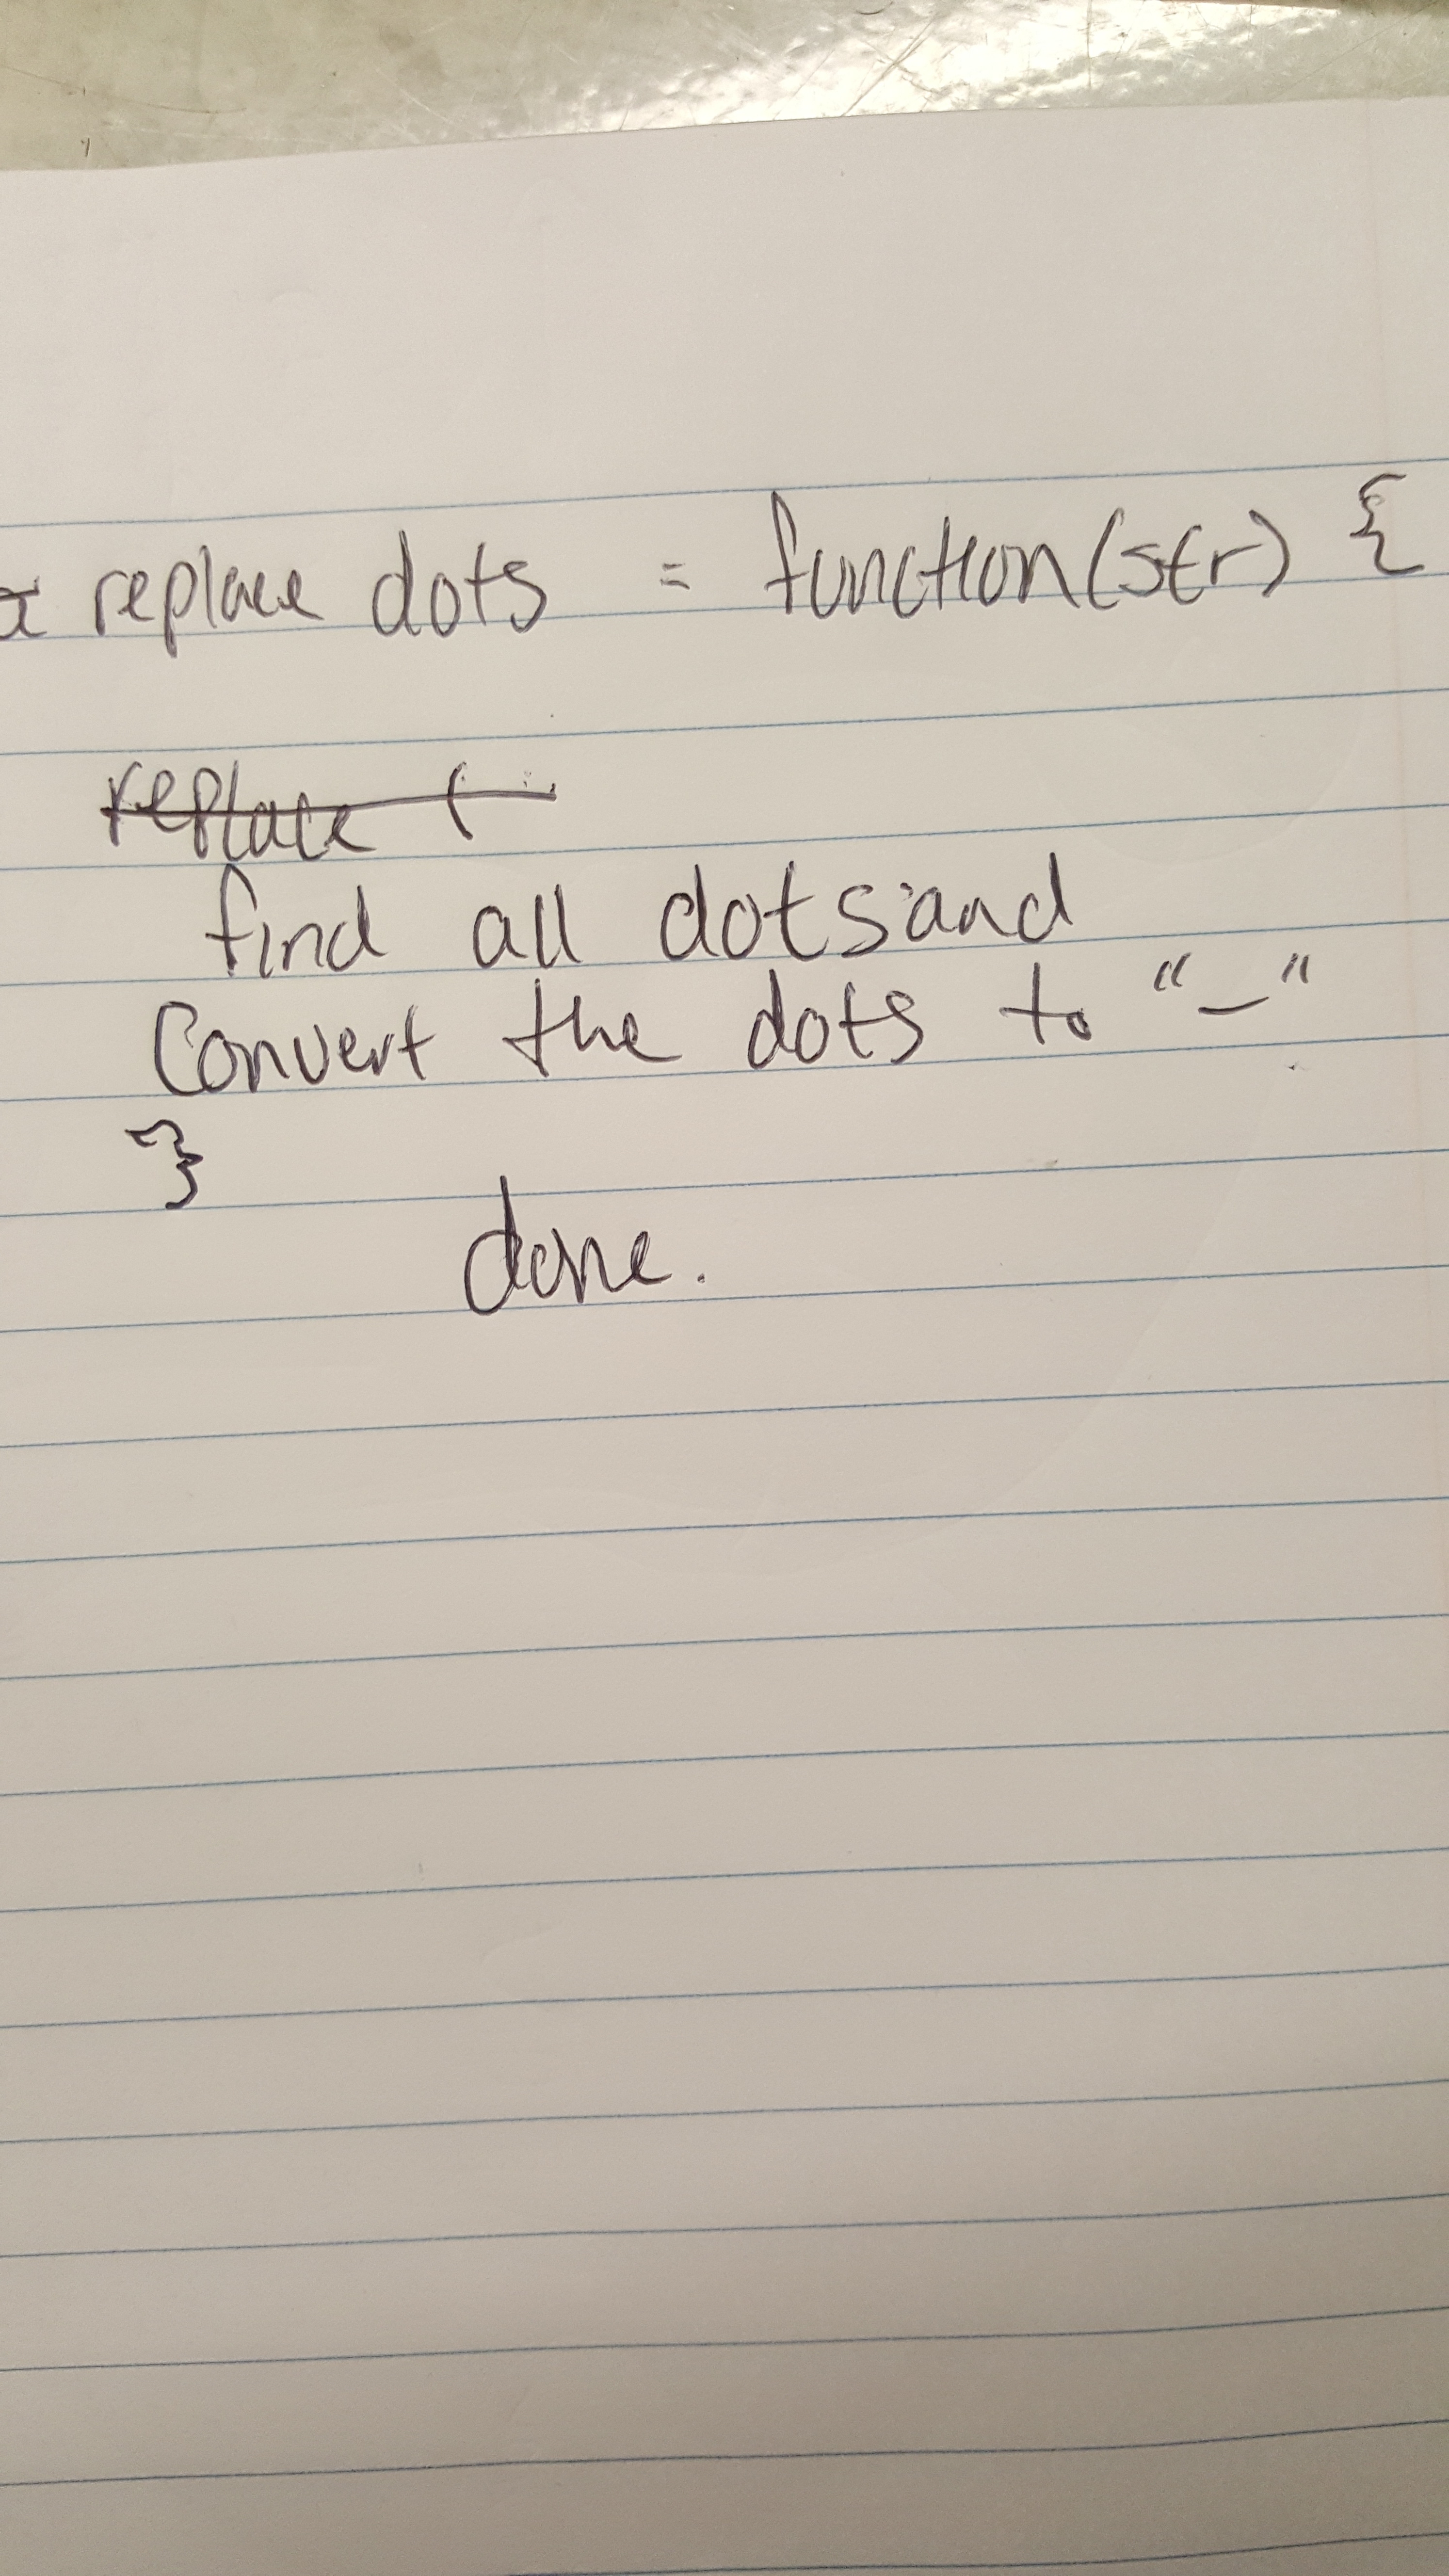 replace dots = function(str) {
replace (
find all dots and
Convert the dots to "-"
}
done.